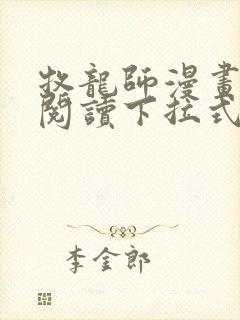 牧龍師漫畫
閱讀下拉式
李金郎